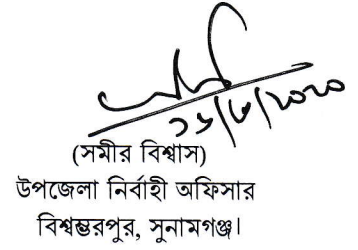 ১৬/৮/২০২০
(সমীর বিশ্বাস)
উপজেলা নির্বাহী অফিসার
বিশ্বম্ভরপুর, সুনামগঞ্জ।